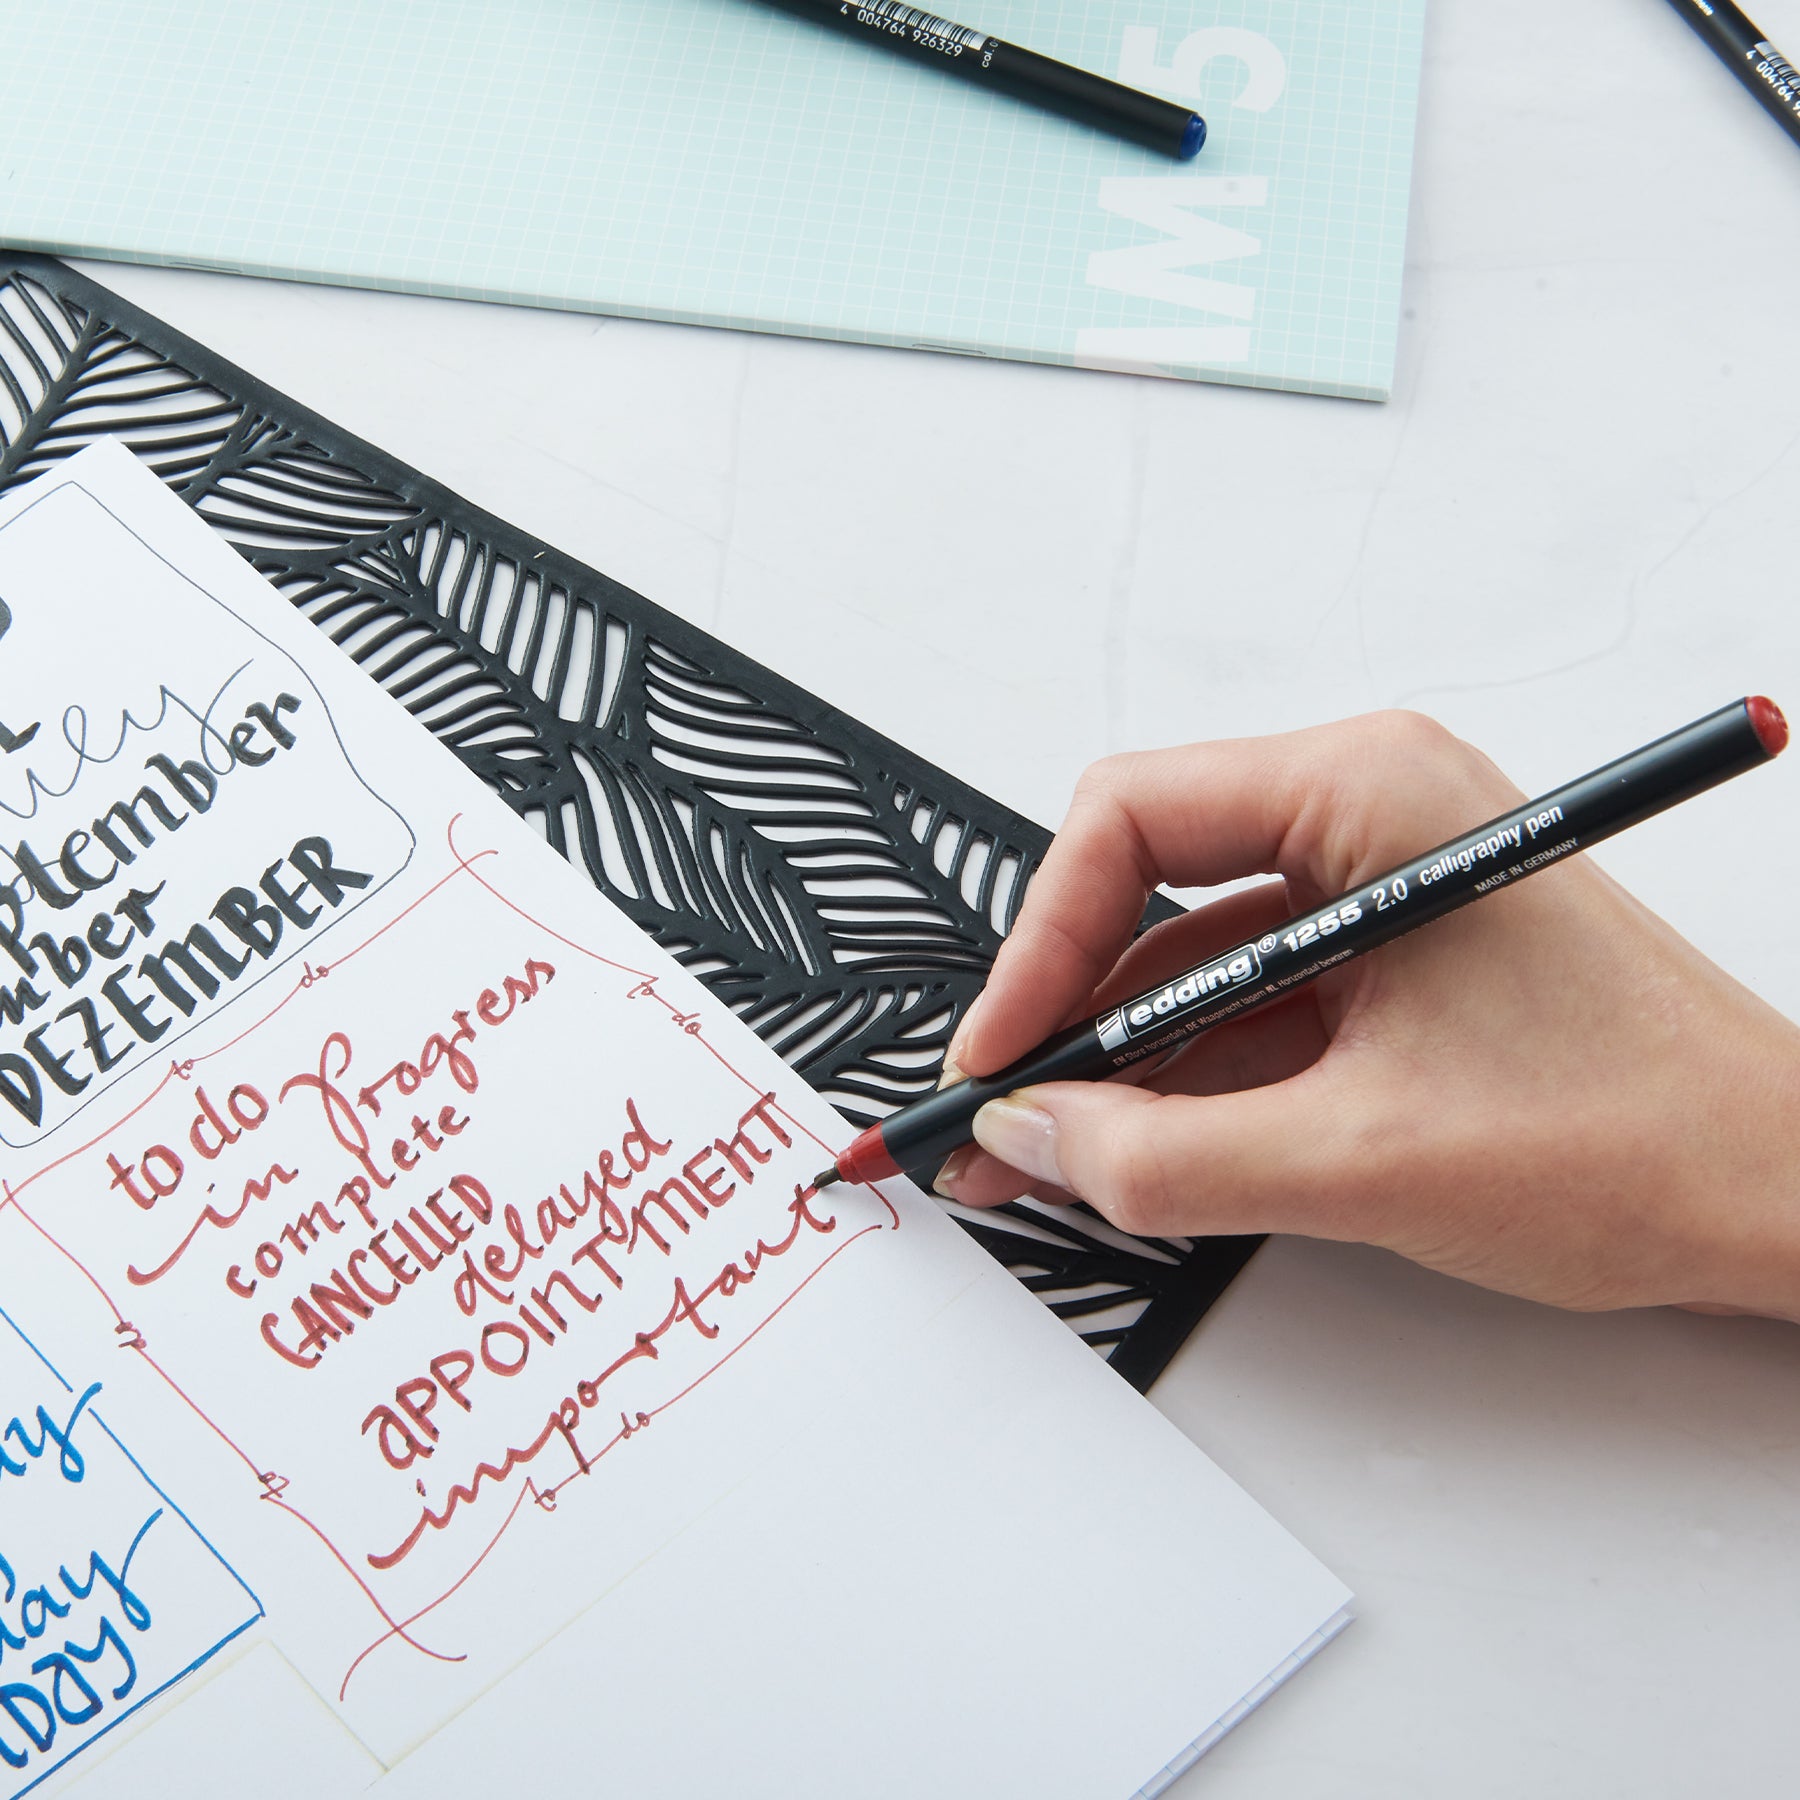 4 004764 926329
col. 0
4 004764 9
M 5
September
DEZEMBER
to do
do
to
do
to do
in progress
complete
CANCELLED
delayed
APPOINTMENT
important
do
to
edding® 1255 2.0 calligraphy pen
MADE IN GERMANY
EN Store horizontally DE Waagerecht lagern NL Horizontaal bewaren